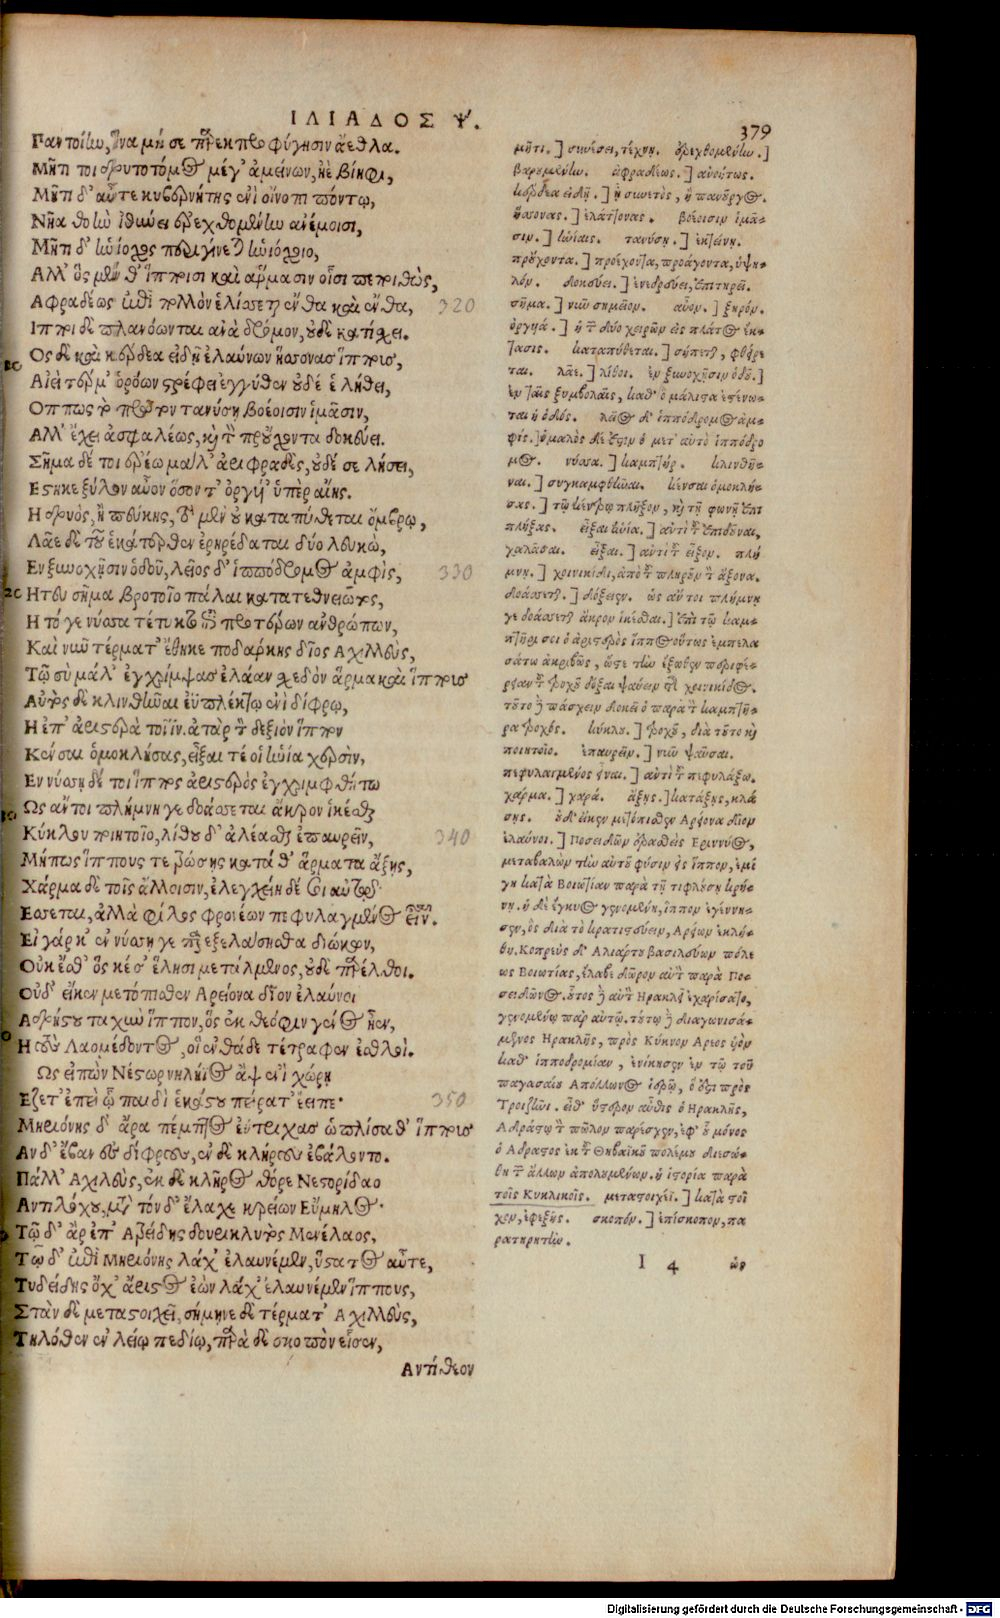 ΙΛΙΑΔΟΣ Ψ.
379
Παντοίην, ἵνα μή σε παρεκπροφύγῃσιν ἄεθλα.
Μήτι τοι δρυτόμος μέγ' ἀμείνων, ἠὲ βίηφι,
Μήτι δ' αὖτε κυβερνήτης ἐνὶ οἴνοπι πόντῳ,
Νῆα θοὴν ἰθύνει ἐρεχθομένην ἀνέμοισι,
Μήτι δ' ἡνίοχος περιγίνεται ἡνιόχοιο,
Αλλ' ὃς μέν θ' ἵπποισι καὶ ἅρμασιν οἷσι πεποιθὼς,
Αφραδέως ἐπὶ πολλὸν ἑλίσσεται ἔνθα καὶ ἔνθα, 320
Ιπποι δὲ πλανόωνται ἀνὰ δρόμον, οὐδὲ κατίσχει.
Ος δὲ καὶ κέρδεα εἰδῇ ἐλαύνων ἥσσονας ἵππους,
Αἰεὶ τέρμ' ὁρόων στρέφει ἐγγύθεν οὐδέ ἑ λήθει,
Οππως τὸ πρῶτον τανύσῃ βοέοισιν ἱμᾶσιν,
Αλλ' ἔχει ἀσφαλέως, καὶ τὸν προὔχοντα δοκεύει.
Σῆμα δέ τοι ἐρέω μάλ' ἀριφραδὲς, οὐδέ σε λήσει,
Εστηκε ξύλον αὖον ὅσον τ' ὄργυι' ὑπὲρ αἴης.
Η δρυὸς, ἢ πεύκης, τὸ μὲν οὐ καταπύθεται ὄμβρῳ,
Λᾶε δὲ τοῦ ἑκάτερθεν ἐρηρέδαται δύο λευκὼ,
Εν ξυνοχῇσιν ὁδοῦ, λεῖος δ' ἱππόδρομος ἀμφὶς, 330
Η τευ σῆμα βροτοῖο πάλαι κατατεθνειῶτος,
Η τό γε νύσσα τέτυκτο ἐπὶ προτέρων ἀνθρώπων,
Καὶ νῦν τέρματ' ἔθηκε ποδάρκης δῖος Αχιλλεὺς,
Τῷ σὺ μάλ' ἐγχρίμψας ἐλάαν σχεδὸν ἅρμα καὶ ἵππους
Αὐτὸς δὲ κλινθῆναι ἐϋπλέκτῳ ἐνὶ δίφρῳ,
Η ἐπ' ἀριστερὰ τοῖϊν. ἀτὰρ τὸν δεξιὸν ἵππον
Κένσαι ὁμοκλήσας, εἶξαί τέ οἱ ἡνία χερσὶν,
Εν νύσσῃ δέ τοι ἵππος ἀριστερὸς ἐγχριμφθήτω
Ως ἄν τοι πλήμνη γε δοάσσεται ἄκρον ἱκέσθαι
Κύκλου ποιητοῖο, λίθου δ' ἀλέασθαι ἐπαυρεῖν, 340
Μήπως ἵππους τε τρώσῃς κατά θ' ἅρματα ἄξῃς,
Χάρμα δὲ τοῖς ἄλλοισιν, ἐλεγχείη δέ σοι αὐτῷ
Εσσεται, ἀλλὰ φίλος φρονέων πεφυλαγμένος εἶναι.
Εἰ γάρ κ' ἐν νύσσῃ γε παρεξελάσησθα διώκων,
Οὐκ ἔσθ' ὅς κέ σ' ἕλησι μετάλμενος, οὐδὲ παρέλθοι.
Οὐδ' εἴκεν μετόπισθεν Αρείονα δῖον ἐλαύνοι
Αδρήστου ταχὺν ἵππον, ὃς ἐκ θεόφιν γένος ἦεν,
Η τοὺς Λαομέδοντος, οἳ ἐνθάδε τέτραφεν ἐσθλοί.
Ως εἰπὼν Νέστωρ νηλήϊος ἂψ ἐνὶ χώρῃ
Εζετ' ἐπεὶ ᾧ παιδὶ ἑκάστου πείρατ' ἔειπε· 350
Μηριόνης δ' ἄρα πέμπτος ἐΰτριχας ὡπλίσαθ' ἵππους
Αν δ' ἔβαν ἐς δίφρους, ἐν δὲ κλήρους ἐβάλοντο.
Πάλλ' Αχιλεὺς, ἐκ δὲ κλῆρος θόρε Νεστορίδαο
Αντιλόχου, μετὰ τόνδ' ἔλαχε κρείων Εὔμηλος·
Τῷ δ' ἄρ ἐπ' Ατρείδης δουρικλυτὸς Μενέλαος,
Τῷ δ' ἐπὶ Μηριόνης λάχ' ἐλαυνέμεν, ὕστατος αὖτε,
Τυδείδης ὄχ' ἄριστος ἐὼν λάχ' ἐλαυνέμεν ἵππους,
Στὰν δὲ μεταστοιχεὶ, σήμηνε δὲ τέρματ' Αχιλλεὺς,
Τηλόθεν ἐν λείῳ πεδίῳ, παρὰ δὲ σκοπὸν εἷσεν,
Αντίθεον
μήτι.] συνέσει, τέχνῃ. ἐρεχθομένην.]
βαρουμένην. ἀφραδέως.] ἀνούτως.
κέρδεα εἰδῇ.] ᾖ συνετὸς, ἢ πανοῦργος.
ἥσσονας.] ἐλάττονας. βοέοισιν ἱμᾶ-
σιν.] ἡνίαις. τανύσῃ.] ἐκτείνῃ.
προὔχοντα.] προέχοντα, προάγοντα, ὑψη-
λόν. δοκεύει.] ἐνεδρεύει, ἐπιτηρεῖ.
σῆμα.] νῦν σημεῖον. αὖον.] ξηρόν.
ὀργυιά.] ἡ τῶν δύο χειρῶν εἰς πλάτος ἔκ-
τασις. καταπύθεται.] σήπεται, φθείρε
ται. λᾶε.] λίθοι. ἐν ξυνοχῇσιν ὁδοῦ.]
ἐν ταῖς ξυμβολαῖς, καθ' ὃ μάλιστα στενοῦ-
ται ἡ ὁδός. λεῖος δ' ἱππόδρομος ἀμ-
φίς.] ὁμαλὸς δέ ἐστιν ὁ μετ' αὐτὸ ἱππόδρο
μος. νύσσα.] καμπτήρ. κλινθῆ-
ναι.] συγκαμφθῆναι. κένσαι ὁμοκλή-
σας.] τῷ κέντρῳ πλῆξον, καὶ τῇ φωνῇ ἐπι
πλήξας. εἶξαι ἡνία.] ἀντὶ τοῦ ἐπιδοῦναι,
χαλάσαι. εἶξαι.] ἀντὶ τοῦ εἶξον. πλή
μνη.] χοινικίδι, ἀπὸ τοῦ πληροῦν τὸν ἄξονα.
δοάσσεται.] δόξειεν. ὡς ἄν τοι πλήμνη
γε δοάσσεται ἄκρον ἱκέσθαι.] Επὶ τῷ καμ-
πτῆρι σοι ὁ ἀριστερὸς ἵππος οὕτως ἐμπελα
σάτω ἀκριβῶς, ὥστε τὴν ἔξωθεν περιφέ-
ρειαν τοῦ τροχοῦ δόξαι ψαύειν τῆς χοινικίδος.
τοῦτο γὰρ πάσχειν δοκεῖ ὁ παρὰ τὸν καμπτῆ-
ρα τροχός. κύκλου.] τροχοῦ, διὰ τοῦτο καὶ
ποιητοῖο. ἐπαυρεῖν.] νῦν ψαῦσαι.
πεφυλαγμένος εἶναι.] ἀντὶ τοῦ πεφυλάξω.
χάρμα.] χαρά. ἄξῃς.] κατάξῃς, κλά
σῃς. οὐδ' εἴκεν μετόπισθεν Αρείονα δῖον
ἐλαύνοι.] Ποσειδῶν ἐρασθεὶς Εριννύος,
μεταβαλὼν τὴν αὐτοῦ φύσιν εἰς ἵππον, ἐμί
γη κατὰ Βοιωτίαν παρὰ τῇ τιλφούσῃ κρή-
νῃ. ἡ δὲ ἔγκυος γενομένη, ἵππον ἐγέννη-
σεν, ὃς διὰ τὸ κρατιστεύειν, Αρείων ἐκλή-
θη. Κοπρεὺς δ' Αλιάρτου βασιλεύων πόλε
ως Βοιωτίας, ἔλαβε δῶρον αὐτὸν παρὰ Πο-
σειδῶνος. οὗτος δὲ αὐτὸν Ηρακλεῖ ἐχαρίσατο,
γενομένῳ παρ' αὐτῷ. τούτῳ δὲ διαγωνισά-
μενος Ηρακλῆς, πρὸς Κύκνον Αρεος υἱὸν
καθ' ἱπποδρομίαν, ἐνίκησεν ἐν τῷ τοῦ
παγασαίου Απόλλωνος ἱερῷ, ὅ ἐστι πρὸς
Τροιζῆνι. εἶθ' ὕστερον αὖθις ὁ Ηρακλῆς,
Αδράστῳ τὸν πῶλον παρέσχεν, ἐφ' οὗ μόνος
ὁ Αδραστος ἐκ τοῦ Θηβαϊκοῦ πολέμου διεσώ-
θη τῶν ἄλλων ἀπολομένων. ἡ ἱστορία παρὰ
τοῖς Κυκλικοῖς. μεταστοιχεί.] κατὰ στοῖ
χον, ἐφεξῆς. σκοπόν.] ἐπίσκοπον, πα
ρατηρητήν.
I 4
ὡς
Digitalisierung gefördert durch die Deutsche Forschungsgemeinschaft - DFG